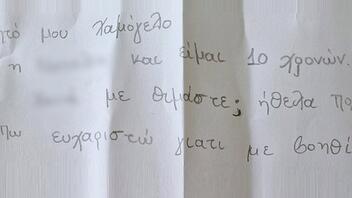 μου χαμόγελο
η και είμαι 10 χρονών.
με θυμάστε; ήθελα
ευχαριστώ γιατι με βοηθ